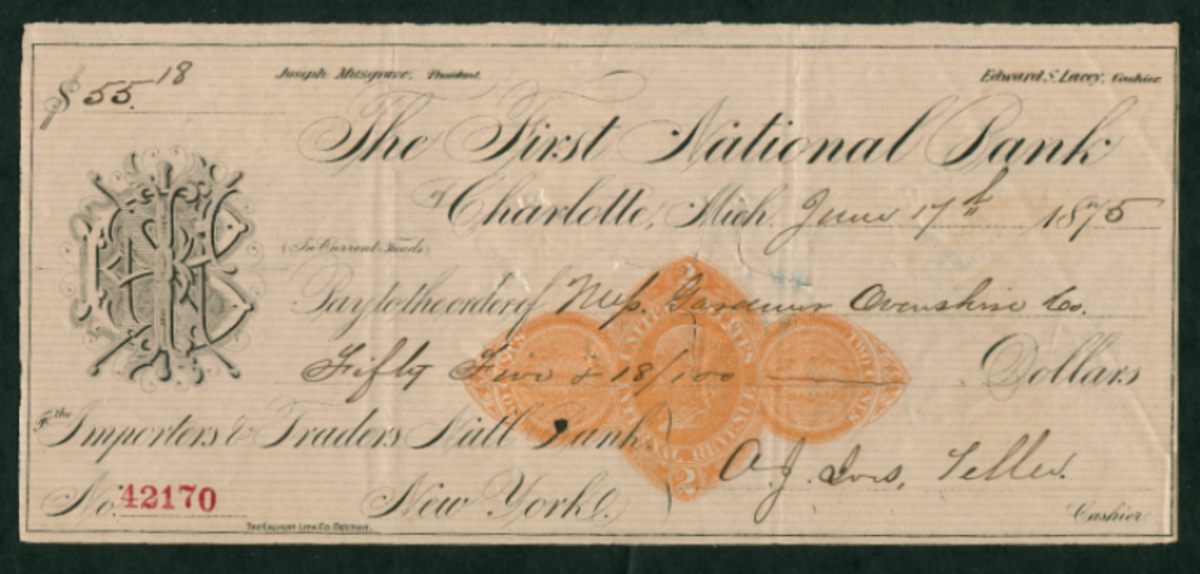 $55.18
Joseph Musgrave, President.
Edward S. Lacey, Cashier.
The First National Bank
of Charlotte, Mich. June 17th 1875
(In Current Funds)
Pay to the order of Mess. Gardiner Ovenshire Co.
Fifty Five & 18/100 Dollars
UNITED STATES
INTERNAL REVENUE
2 2
To the Importers & Traders Natl. Bank
A.J. Ives, Teller.
No. 42170 New York.
Cashier
The Calvert Lith. Co. Detroit.